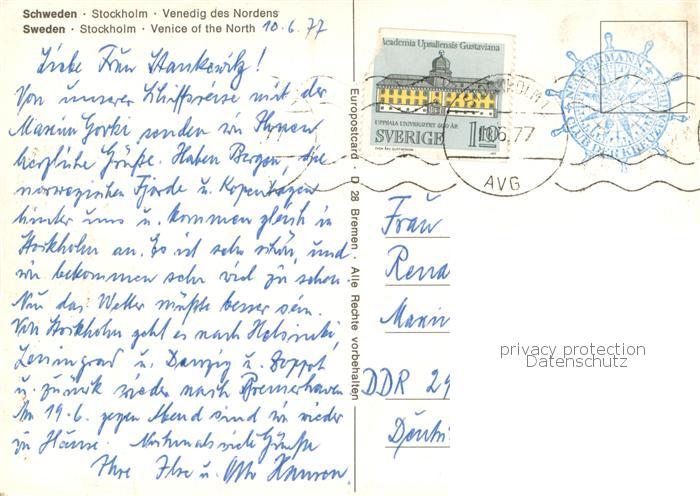 Schweden · Stockholm · Venedig des Nordens
Sweden · Stockholm · Venice of the North 10.6.77
Liebe Frau Stankewitz!
Von unserer Schiffsreise mit der
Maxim Gorki senden wir Ihnen
herzliche Grüße. Haben Bergen, die
norwegischen Fjorde u. Kopenhagen
hinter uns u. kommen gleich in
Stockholm an. Es ist sehr schön, und
wir bekommen sehr viel zu sehen.
Nur das Wetter müßte besser sein.
Von Stockholm geht es nach Helsinki,
Leningrad u. Danzig u. Zoppot
u. zurück wieder nach Bremerhaven
Am 19.6. gegen Abend sind wir wieder
zu Hause. Nochmals viele Grüße
Ihre Ilse u. Otto Hansen.
Europostcard · D 28 Bremen · Alle Rechte vorbehalten
Academia Upsaliensis Gustaviana
UPPSALA UNIVERSITET 500 ÅR
SVERIGE 1.10
STOCKHOLM
10.6.77
AVG
Frau
Rena
Maxi
DDR 29
Deuts
privacy protection
Datenschutz